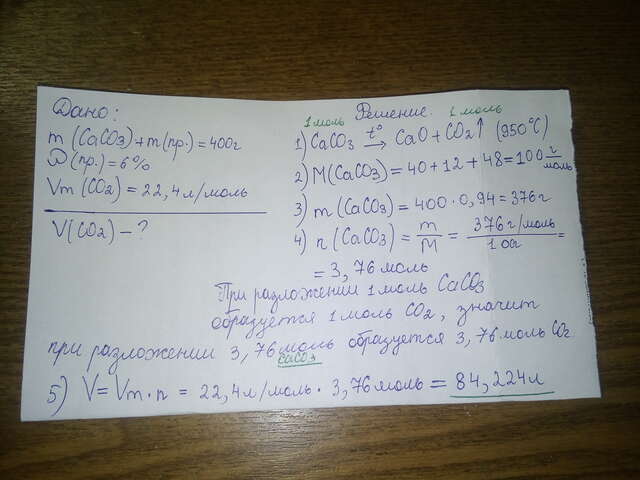 Дано:
m(CaCO3)+m(пр.)=400г
P(пр.)=6%
Vm(CO2)=22,4л/моль
V(CO2)-?
Решение.
1моль 1 моль
1) CaCO3 t° → CaO+CO2↑ (950°C)
2) M(CaCO3)=40+12+48=100 г/моль
3) m(CaCO3)=400·0,94=376г
4) n(CaCO3)= m/M = 376г/моль/100г =
=3,76моль
При разложении 1 моль CaCO3
образуется 1 моль CO2, значит
при разложении 3,76моль образуется 3,76 моль CO2.
CaCO3
5) V=Vm·n=22,4л/моль·3,76моль=84,224л